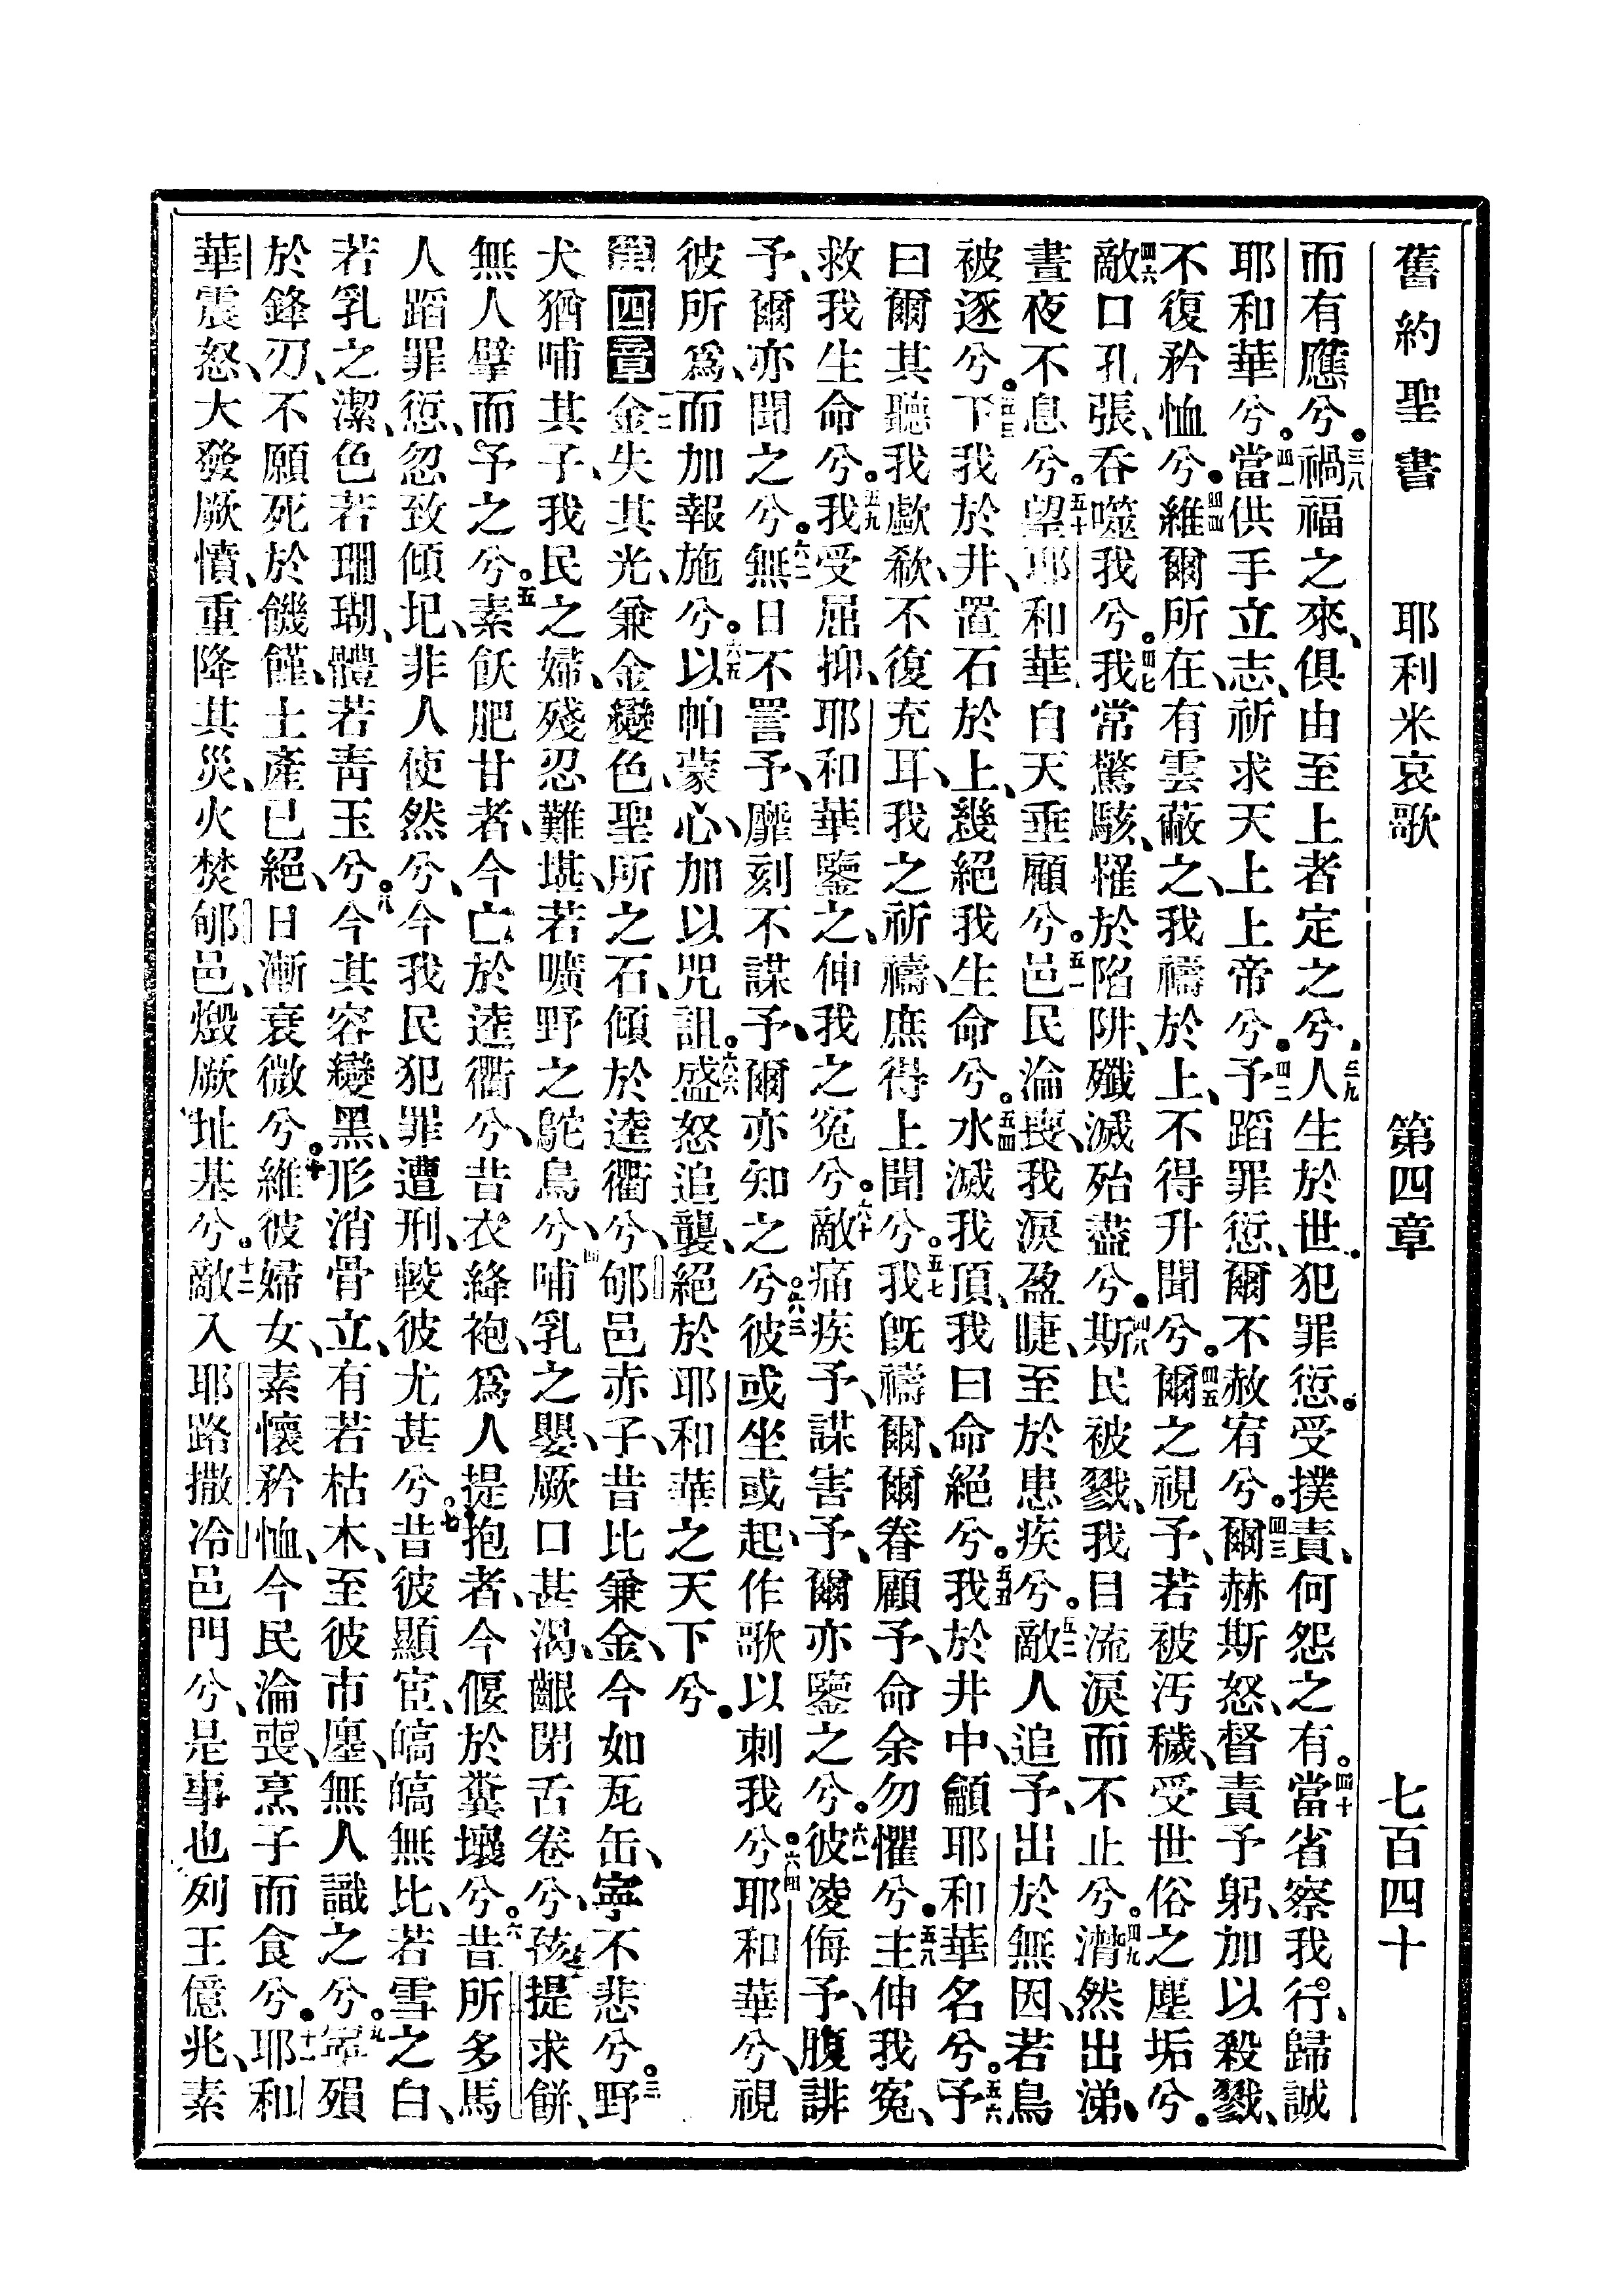 舊約聖書 耶利米哀歌 第四章 七百四十
而有應兮。三八禍福之來、俱由至上者定之兮、三九人生於世、犯罪愆。受撲責、何怨之有。四十當省察我行、歸誠
耶和華兮。四一當供手立志、祈求天上上帝兮。四二予蹈罪愆、爾不赦宥兮。四三爾赫斯怒、督責予躬、加以殺戮、
不復矜恤兮。四四維爾所在、有雲蔽之、我禱於上、不得升聞兮。四五爾之視予、若被汚穢、受世俗之塵垢兮。
四六敵口孔張、吞噬我兮。四七我常驚駭、罹於陷阱、殲滅殆盡兮。四八斯民被戮、我目流淚而不止兮。四九潸然出涕、
晝夜不息兮。五十望耶和華自天垂顧兮。五一邑民淪喪、我淚盈睫、至於患疾兮。五二敵人追予、出於無因、若鳥
被逐兮。五三下我於井、置石於上、幾絕我生命兮。五四水滅我頂、我曰命絕兮。五五我於井中、籲耶和華名兮。五六予
曰爾其聽我歔欷、不復充耳、我之祈禱、庶得上聞兮。五七我旣禱爾、爾眷顧予、命余勿懼兮。五八主伸我寃、
救我生命兮。五九我受屈抑、耶和華鑒之、伸我之寃兮。六十敵痛疾予、謀害予、爾亦鑒之兮。六一彼凌侮予、腹誹
予、爾亦聞之兮。六二無日不詈予、靡刻不謀予、爾亦知之兮。六三彼或坐或起、作歌以刺我兮。六四耶和華兮、視
彼所爲、而加報施兮。六五以帕蒙心、加以咒詛。六六盛怒追襲、絕於耶和華之天下兮。
第四章 一金失其光、兼金變色、聖所之石、傾於逵衢兮、二郇邑赤子、昔比兼金、今如瓦缶、寧不悲兮。三野
犬猶哺其子、我民之婦、殘忍難堪、若曠野之鴕鳥兮、四哺乳之嬰、厥口甚渴、齦閉舌卷兮、孩提求餅、
無人擘而予之兮。五素飫肥甘者、今亡於逵衢兮、昔衣絳袍、爲人提抱者、今偃於糞壤兮。六昔所多馬
人蹈罪愆、忽致傾圮、非人使然兮、今我民犯罪遭刑、較彼尤甚兮。七昔彼顯宦、皜皜無比、若雪之白、
若乳之潔、色若珊瑚、體若靑玉兮。八今其容變黑、形消骨立、有若枯木、至彼市廛、無人識之兮。九寧殞
於鋒刃、不願死於饑饉、土產已絕、日漸衰微兮。十維彼婦女、素懷矜恤、今民淪喪、烹子而食兮。十一耶和
華震怒、大發厥憤、重降其災、火焚郇邑、燬厥址基兮。十二敵入耶路撒冷邑門兮、是事也列王億兆、素